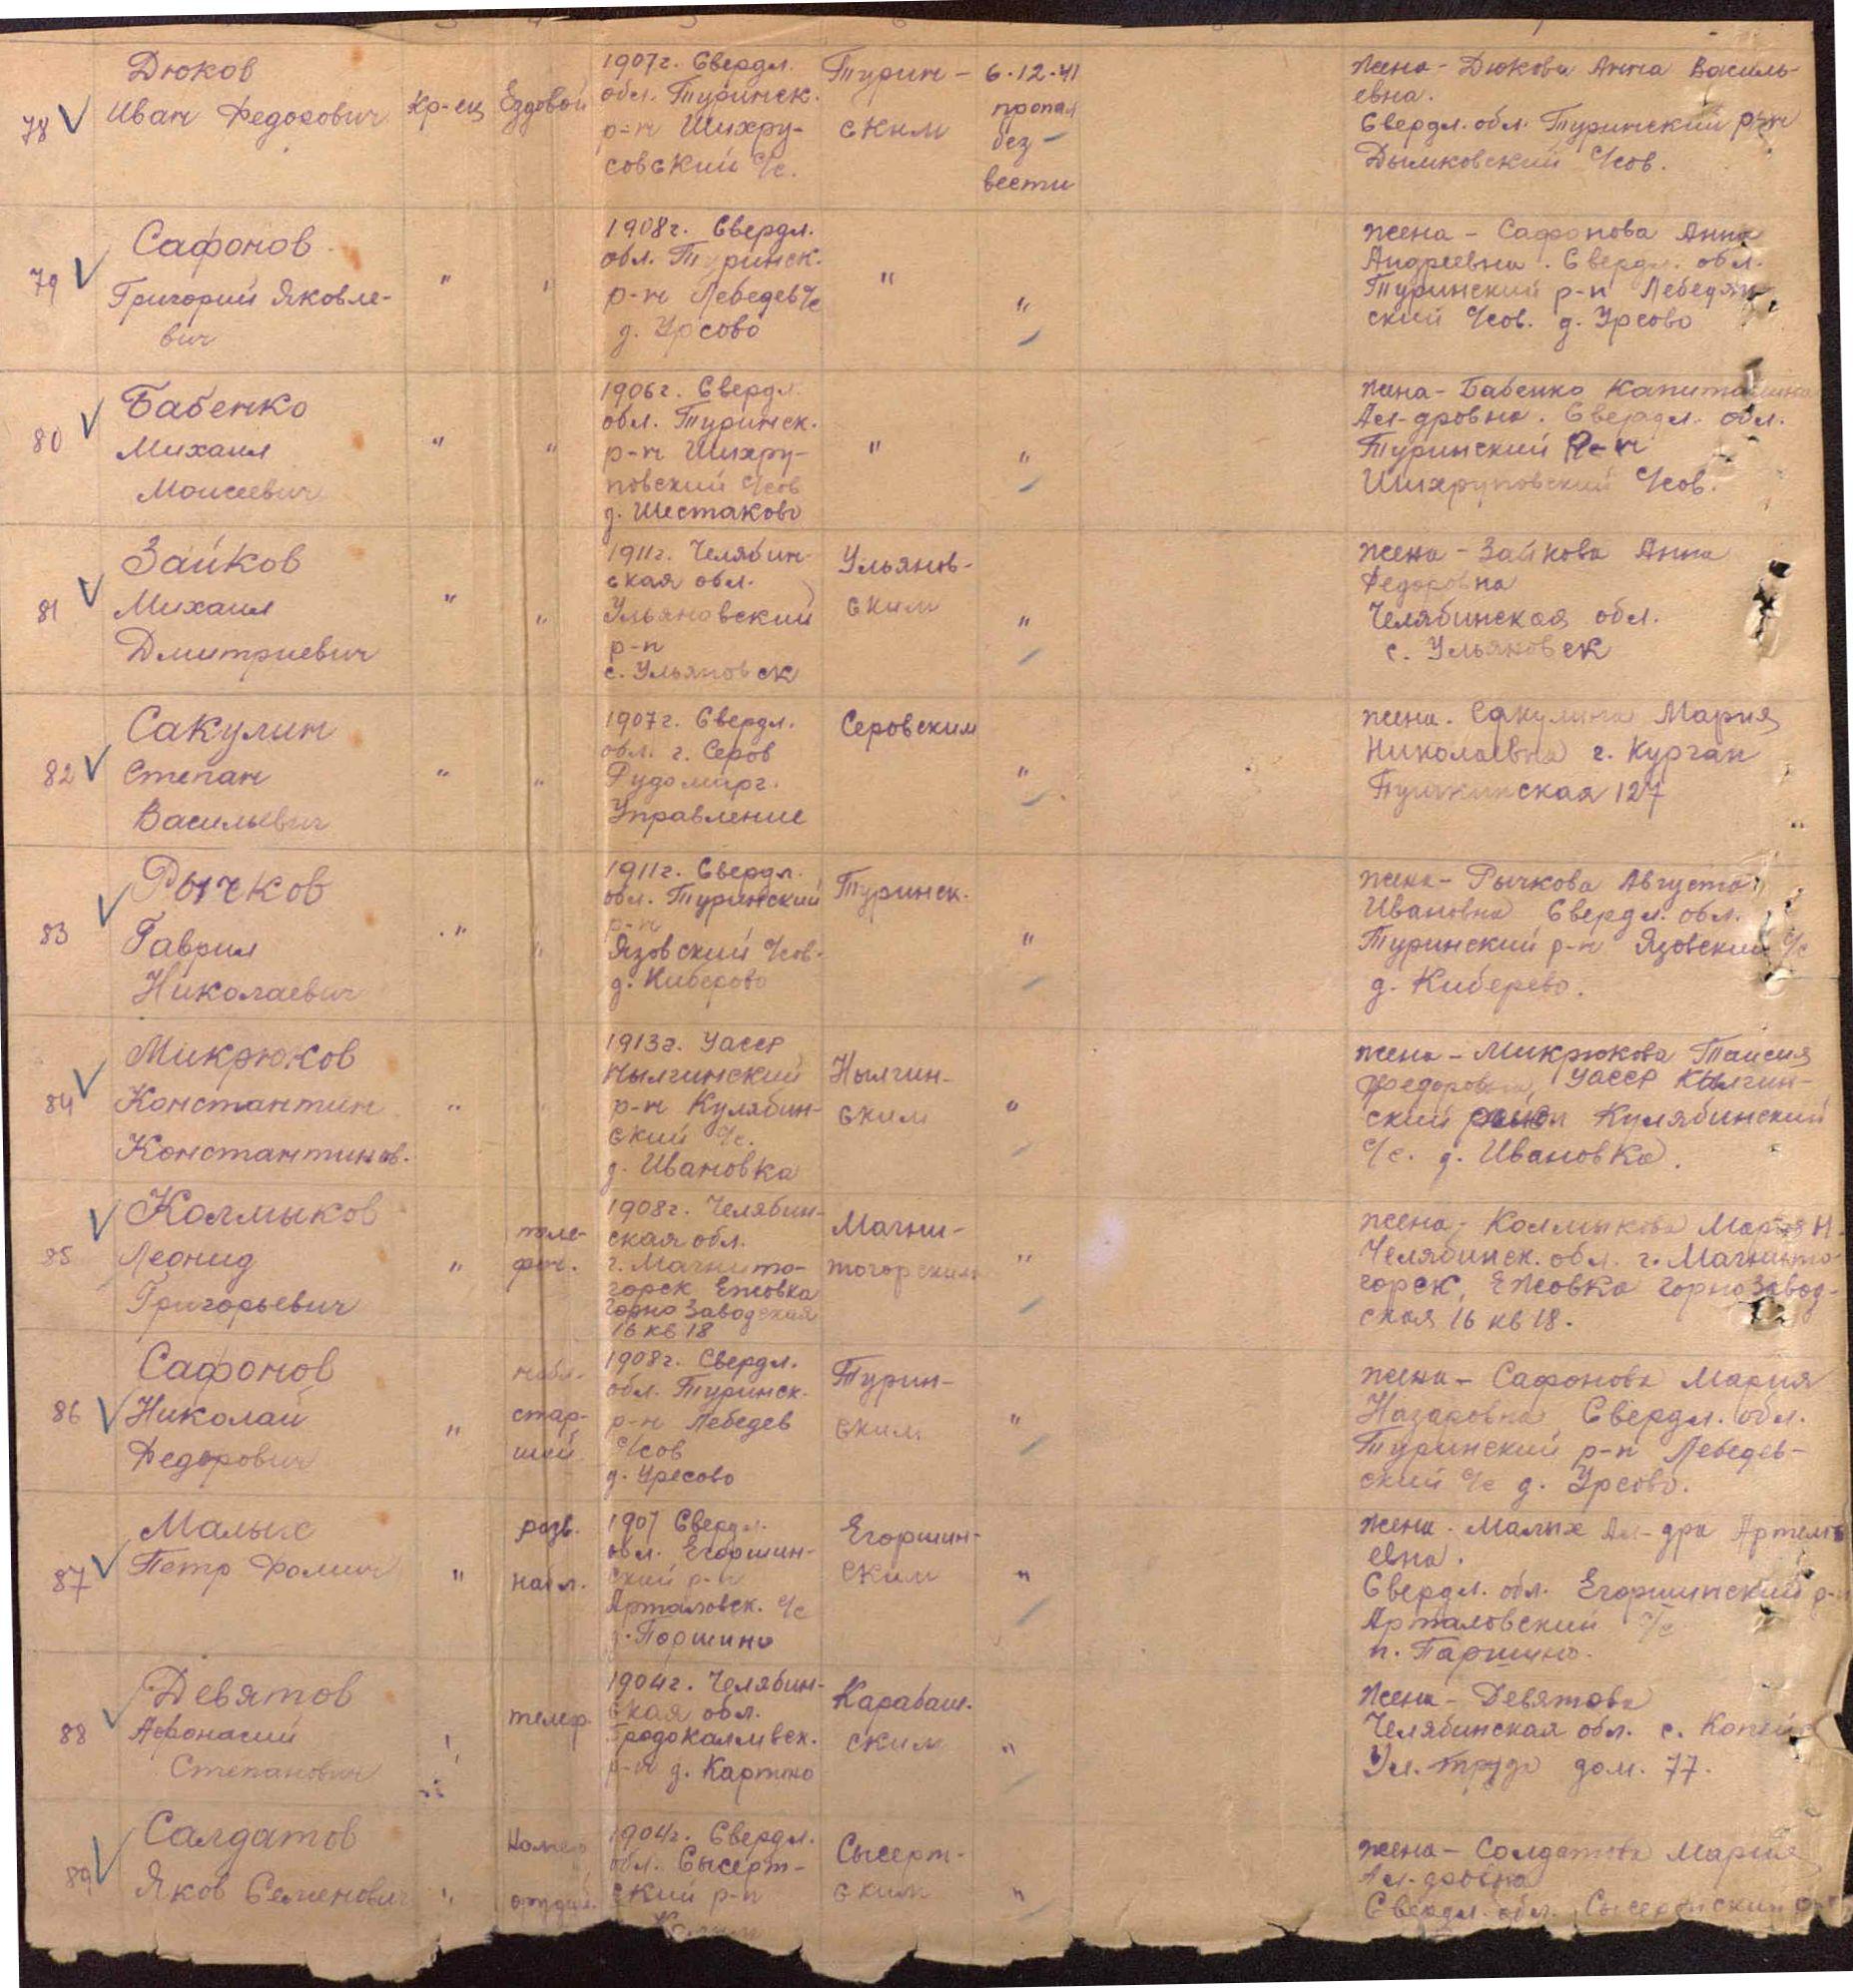 3 4 5 6 7
78
Дюков
Иван Федорович
Кр-ец
Ездовой
1907г. Свердл.
обл. Туринск.
р-н Шихру-
совский С/с.
Турин-
ским
6.12.41
пропал
без
вести
жена - Дюкова Анна Василь-
евна.
Свердл. обл. Туринский р-н
Дымковский С/сов.
79
Сафонов
Григорий Яковле-
вич
"
"
1908г. Свердл.
обл. Туринск.
р-н Лебедев С/с
д. Урсово
"
"
жена - Сафонова Анна
Андреевна. Свердл. обл.
Туринский р-н
ский С/сов. д. Урсово
80
Бабенко
Михаил
Моисеевич
"
"
1906г. Свердл.
обл. Туринск.
р-н Шихру-
повский С/сов
д. Шестаково
"
"
жена - Бабенко Капиталина
Ал-дровна. Свердл. обл.
Туринский р-н
Шихруповский С/сов.
81
Зайков
Михаил
Дмитриевич
"
"
1911г. Челябин-
ская обл.
Ульяновский
р-н
с. Ульяновск
Ульянов-
ским
"
жена - Зайкова Анна
Федоровна
Челябинская обл.
с. Ульяновск
82
Сакулин
Степан
Васильевич
"
"
1907г. Свердл.
обл. г. Серов
Управление
Серовским
"
жена. Сакулина Мария
Николаевна г. Курган
Пушкинская 127
83
Рычков
Гаврил
Николаевич
"
"
1911г. Свердл.
обл. Туринский
р-н
Язовский С/сов.
д. Киберево
Туринск.
"
жена - Рычкова Августа
Ивановна Свердл. обл.
Туринский р-н Язовский С/с
д. Киберево.
84
Микрюков
Константин
Константинов.
"
1913г. УАССР
Нылгинский
р-н Кулябин-
ский С/с.
д. Ивановка
Нылгин-
ским
"
жена - Микрюкова Таисия
Федоровна, УАССР Нылгин-
ский Кулябинский
С/с. д. Ивановка.
85
Колмыков
Леонид
Григорьевич
"
теле-
фон.
1908г. Челябин-
ская обл.
г. Магнито-
горск Ежовка
Горно Заводская
16 кв 18
Магни-
тогорским
"
жена - Колмыкова Мария Н.
Челябинск. обл. г. Магнито-
горск, Ежовка горно Завод-
ская 16 кв 18.
86
Сафонов
Николай
Федорович
"
набл.
стар-
ший
1908г. Свердл.
обл. Туринск.
р-н Лебедев
С/сов
д. Уресово
Турин-
ским
"
жена - Сафонова Мария
Назаровна Свердл. обл.
Туринский р-н Лебедев-
ский С/с д. Урсово.
87
Малых
Петр Фомич
"
разв.
набл.
1907 Свердл.
обл. Егоршин-
ский р-н
Артамовск. С/с
д. Паршино
Егоршин-
ским
"
жена. Малых Ал-дра Артемь
евна.
Свердл. обл. Егоршинский р-н
Артамовский С/с
п. Паршино.
88
Девятов
Афонасий
Степанович
"
телеф.
1904г. Челябин-
ская обл.
Бродокалмвск.
р-н д. Картино
Карабаш.
ским
"
Жена - Девятова
Челябинская обл. с. Копейс
Ул. труда дом. 77.
89
Салдатов
Яков Семенович
"
Номер
орудий.
1904г. Свердл.
обл. Сысерт-
ский р-н
Сысерт-
ским
"
жена - Солдатова Мария
Ал-дровна
Свердл. обл. Сысертский р-н